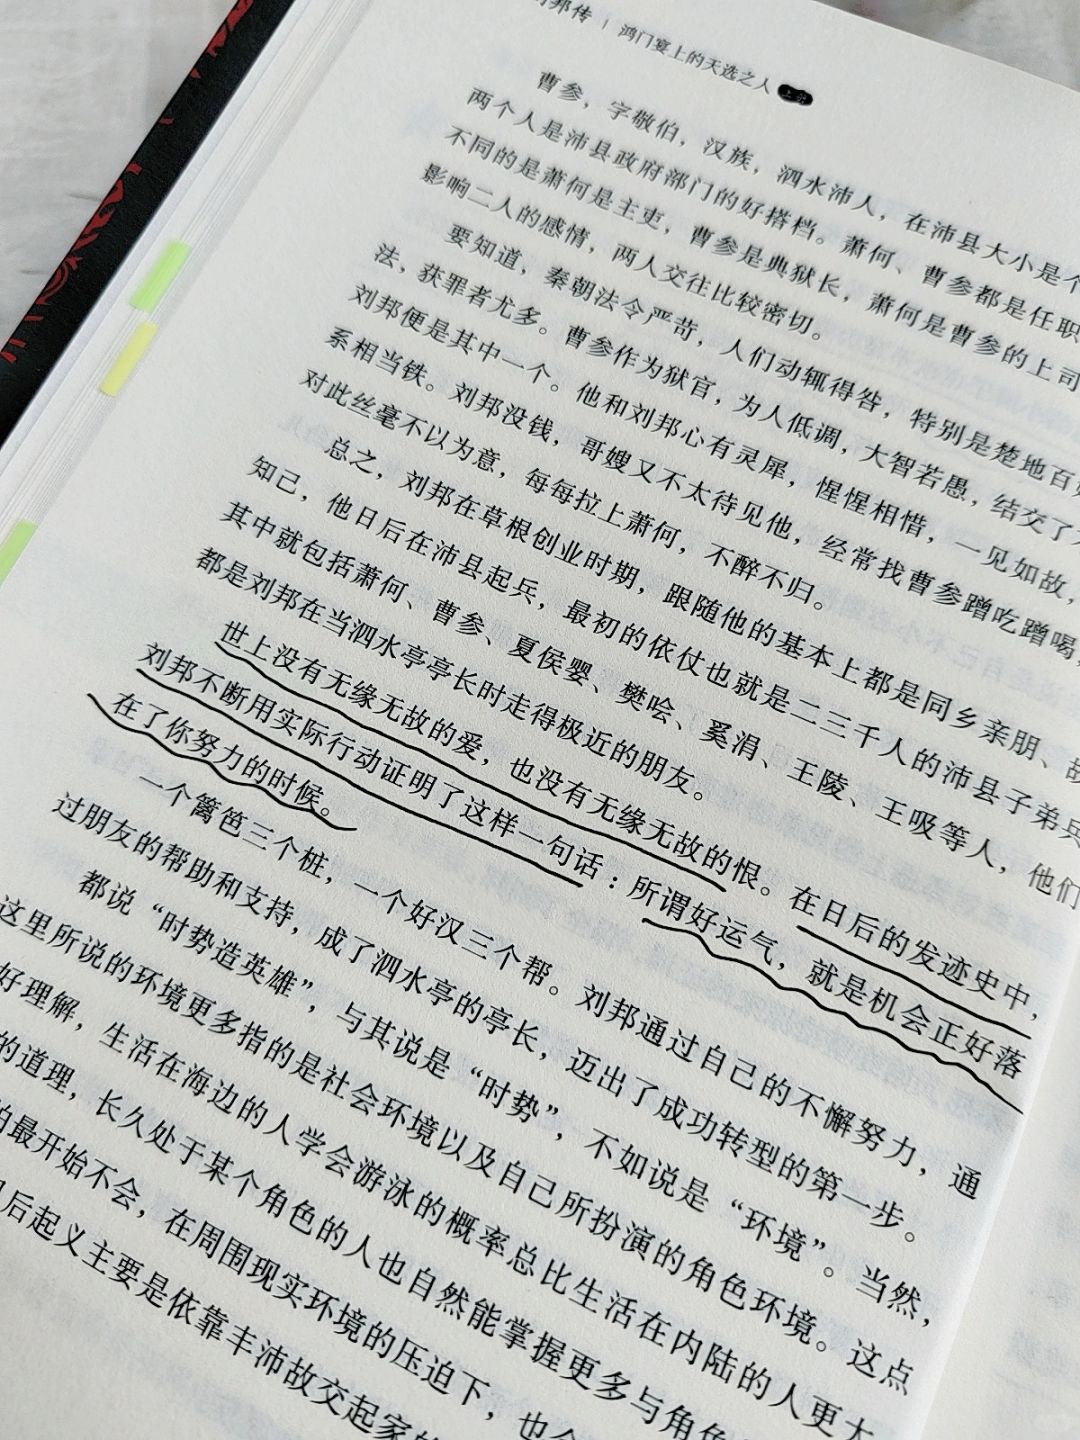 邦传 | 鸿门宴上的天选之人 上册
曹参，字敬伯，汉族，泗水沛人，在沛县大小是个
两个人是沛县政府部门的好搭档。萧何、曹参都是任职
不同的是萧何是主吏，曹参是典狱长，萧何是曹参的上司
影响二人的感情，两人交往比较密切。
要知道，秦朝法令严苛，人们动辄得咎，特别是楚地百
法，获罪者尤多。曹参作为狱官，为人低调，大智若愚，结交了
刘邦便是其中一个。他和刘邦心有灵犀，惺惺相惜，一见如故，
系相当铁。刘邦没钱，哥嫂又不太待见他，经常找曹参蹭吃蹭喝，
对此丝毫不以为意，每每拉上萧何，不醉不归。
总之，刘邦在草根创业时期，跟随他的基本上都是同乡亲朋、故
知己，他日后在沛县起兵，最初的依仗也就是二三千人的沛县子弟兵
其中就包括萧何、曹参、夏侯婴、樊哙、奚涓、王陵、王吸等人，他们
都是刘邦在当泗水亭亭长时走得极近的朋友。
世上没有无缘无故的爱，也没有无缘无故的恨。在日后的发迹史中，
刘邦不断用实际行动证明了这样一句话：所谓好运气，就是机会正好落
在了你努力的时候。
一个篱笆三个桩，一个好汉三个帮。刘邦通过自己的不懈努力，通
过朋友的帮助和支持，成了泗水亭的亭长，迈出了成功转型的第一步。
都说“时势造英雄”，与其说是“时势”，不如说是“环境”。当然，
这里所说的环境更多指的是社会环境以及自己所扮演的角色环境。这点
好理解，生活在海边的人学会游泳的概率总比生活在内陆的人更大
的道理，长久处于某个角色的人也自然能掌握更多与角色
怕最开始不会，在周围现实环境的压迫下，也会
后起义主要是依靠丰沛故交起家的